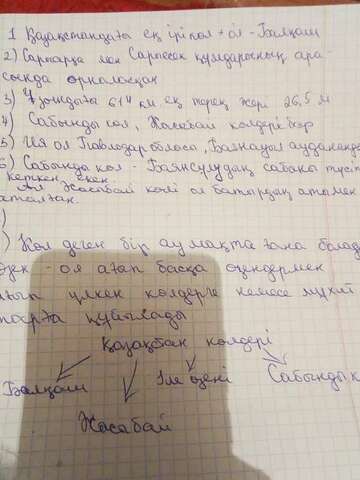 1 Қазақстандағы ең ірі көл + ол - Балқаш
2) Сарыарқа мен Сарыесек құмдарының ара-
сында орналасқан
3) Ұзындығы 614 км ең терең жері 26,5 м
4) Сабынды көл, Жасабай көлдері бар
5) Ия ол Павлодар облысы, Баянауыл ауданында
6) Сабынды көл - Баянсулудың сабаны түсіп
кеткен екен
Ал Жасабай көлі ол батырдың атымен
аталған.
)
) Көл деген бір аумақта ғана болады
Өзен - ол ағып басқа өзендермен
үлкен көлдерге немесе мұхит
құйылады
Қазақстан көлдері
Балқаш
Іле өзені
Сабынды к
Жасабай